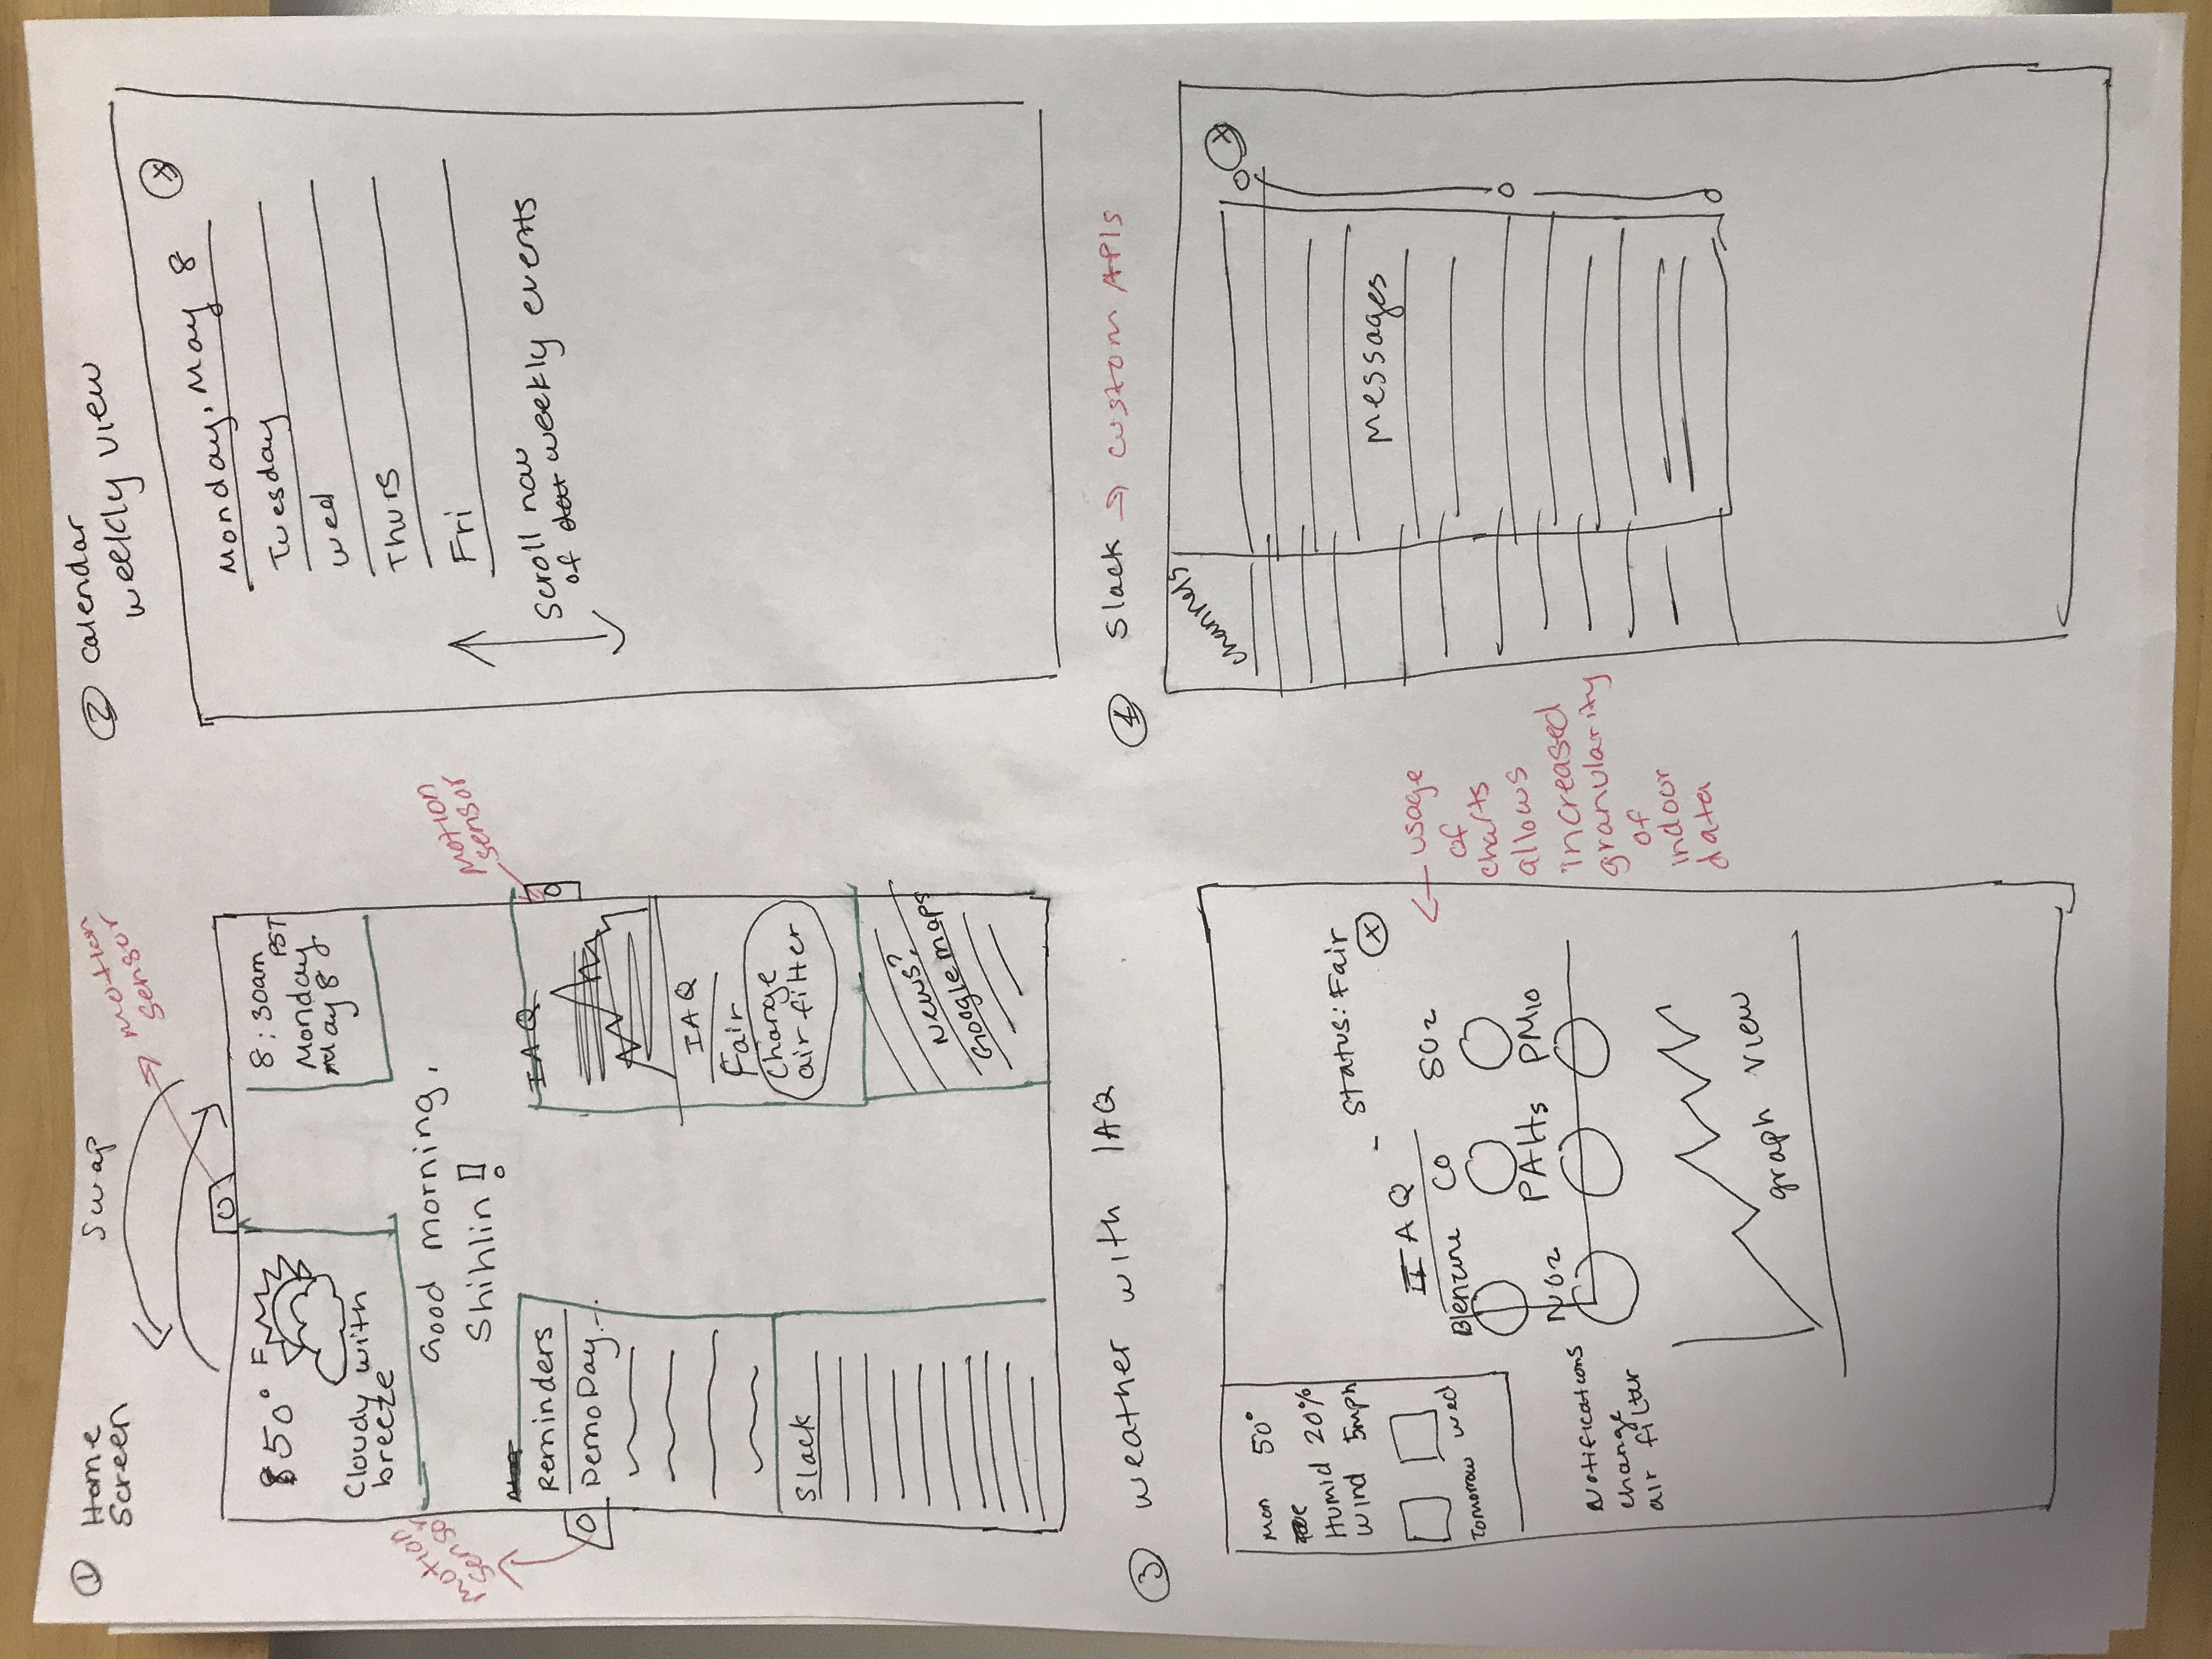 1 Home
Screen
Swap
motion
sensor
50° F
Cloudy with
breeze
8:30am
PST
Monday
May 8
motion
sensor
Good morning,
Shihlin!
motion
sensor
Reminders
DemoDay...
Slack
IAQ
IAQ
Fair
Change
air filter
News?
Google maps
2 Calendar
weekly view
x
Monday, May 8
Tuesday
Wed
Thurs
Fri
Scroll nav
of weekly events
3 weather with IAQ
Mon 50°
Humid 20%
Wind 5mph
Tomorrow Wed
Status: Fair
x
IAQ -
Benzine CO SO2
NO2 PAHs PM10
Notifications
change
air filter
graph view
← usage
of
charts
allows
increased
granularity
of
indoor
data
4 Slack → custom APIs
channels
x
Messages